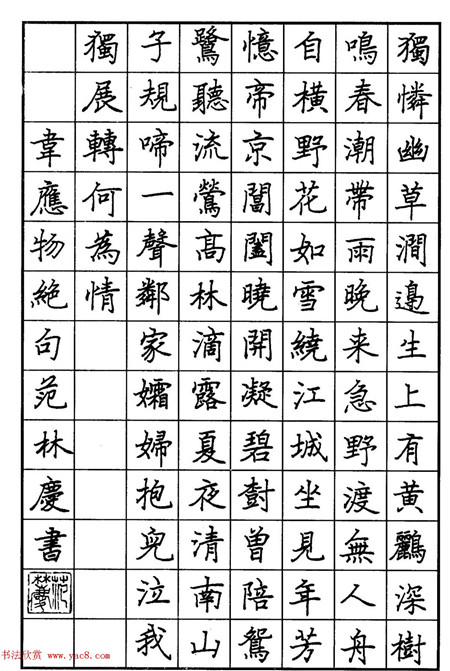 獨憐幽草澗邊生上有黃鸝深樹
鳴春潮帶雨晚来急野渡無人舟
自橫野花如雪繞江城坐見年芳
憶帝京閶闔曉開凝碧尌曾陪鴛
鷺聽流鶯髙林滴露夏夜清南山
子規啼一聲鄰家孀婦抱兒泣我
獨展轉何為情
韋應物絕句范林慶書
书法欣赏 www.yac8.com